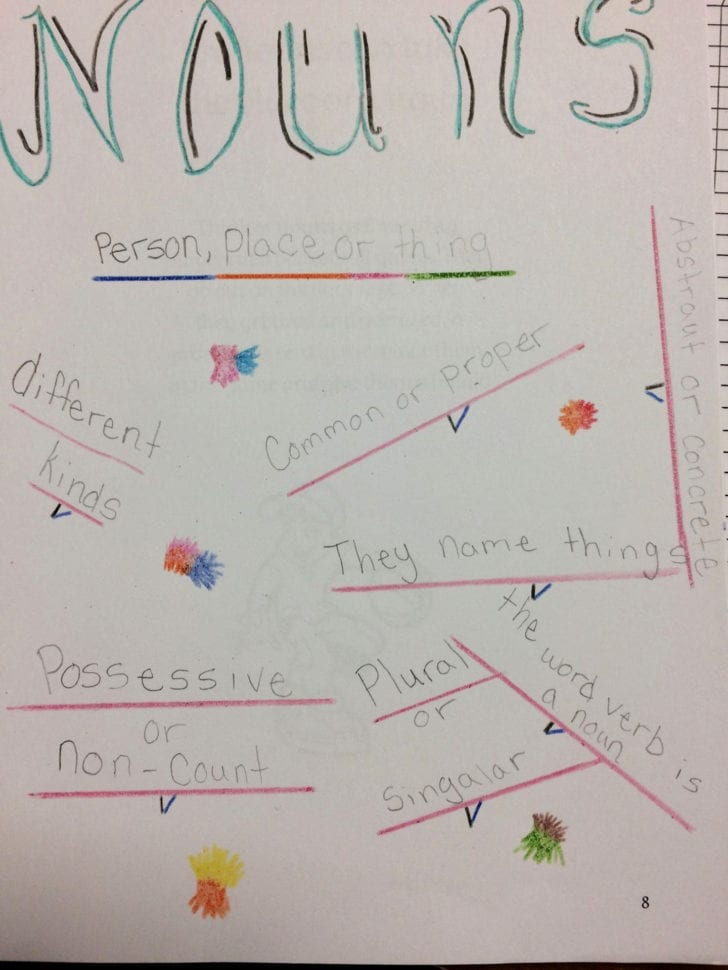 Nouns
Person, Place or thing
Abstraut or Concrete
Common or proper
different
kinds
They name things
the word verb is
a noun
Plural
or
Singalar
Possessive
or
non-Count
8